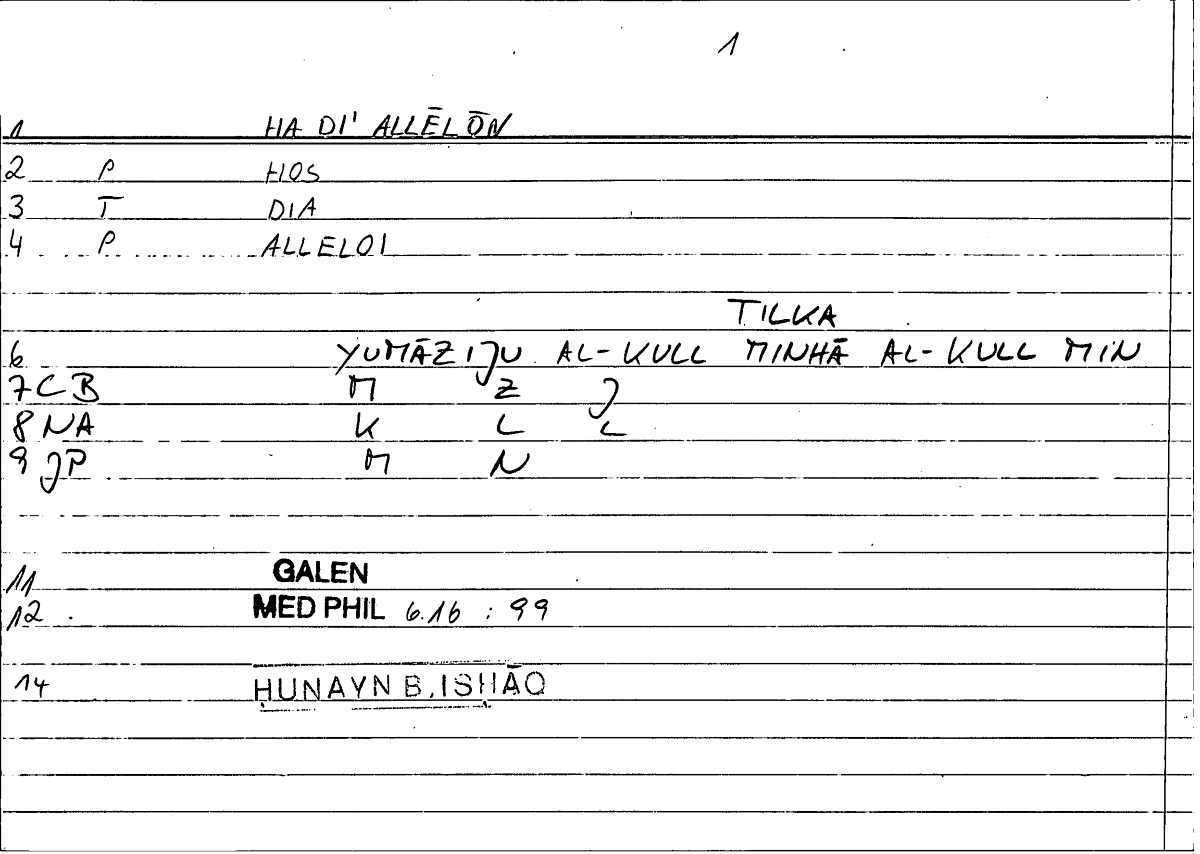 1
1 HA DI' ALLĒLŌN
2 P HOS
3 T DIA
4 P ALLELOI
TILKA
6 YUMĀZIJU AL-KULL MINHĀ AL-KULL MIN
7 CB M Z J
8 NA K L L
9 JP M N
11 GALEN
12 MED PHIL 6.16 : 99
14 ḤUNAYN B. ISḤĀQ